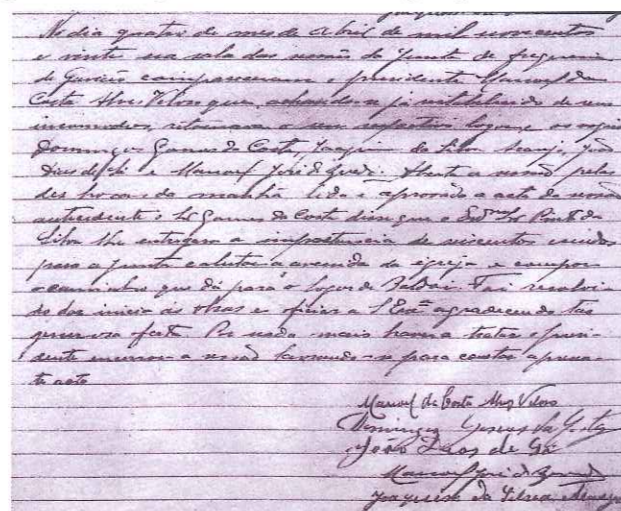 No dia quatro do mes de Abril de mil novecentos
e vinte na sala das sessões da Junta de freguesia
de compareceram o presidente Manoel da
Costa Alves Veloso que, achando-se já restabelecido de seus
incommodos, retomava o seu respectivo logar e os vogais
Domingos Gomes da Costa, Joaquim da Silva Araujo, João
Dias de Sá e Manoel José de Aberta a sessão pelas
dez horas da manhã lida e aprovada a acta da sessão
antecedente o Sr Gomes da Costa disse que o Sr Pinto da
Silva lhe entregara a importancia de seiscentos escudos
para a Junta a avenida da egreja e compor
o caminho que dá para o logar de Foi resolvi-
do dar inicio ás obras e oficiar a S. Exª agradecendo tão
generosa oferta. Por nada mais haver a tratar o presi-
dente encerrou a sessão lavrando-se para constar a presen-
te acta
Manoel da Costa Alves Veloso
Domingos Gomes da Costa
João Dias de Sá
Manoel José de
Joaquim da Silva Araujo